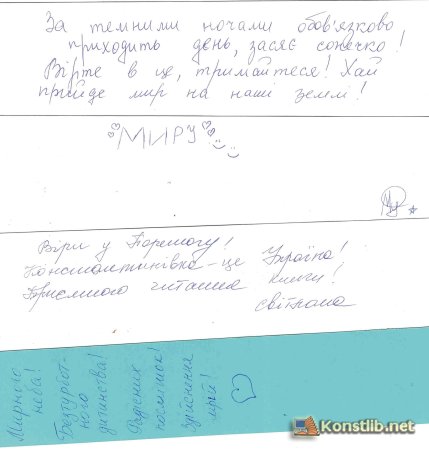 За темними ночами обов'язково
приходить день, засяє сонечко!
Вірте в це, тримайтеся! Хай
прийде мир на наші землі!
МИРУ
Віри у Перемогу!
Константинівка - це Україна!
Приємного читання книги!
Світлана
Мирного
неба!
Безтурбот-
ного
дитинства!
Радісних
посмішок!
Здійснення
мрій!
Konstlib.net